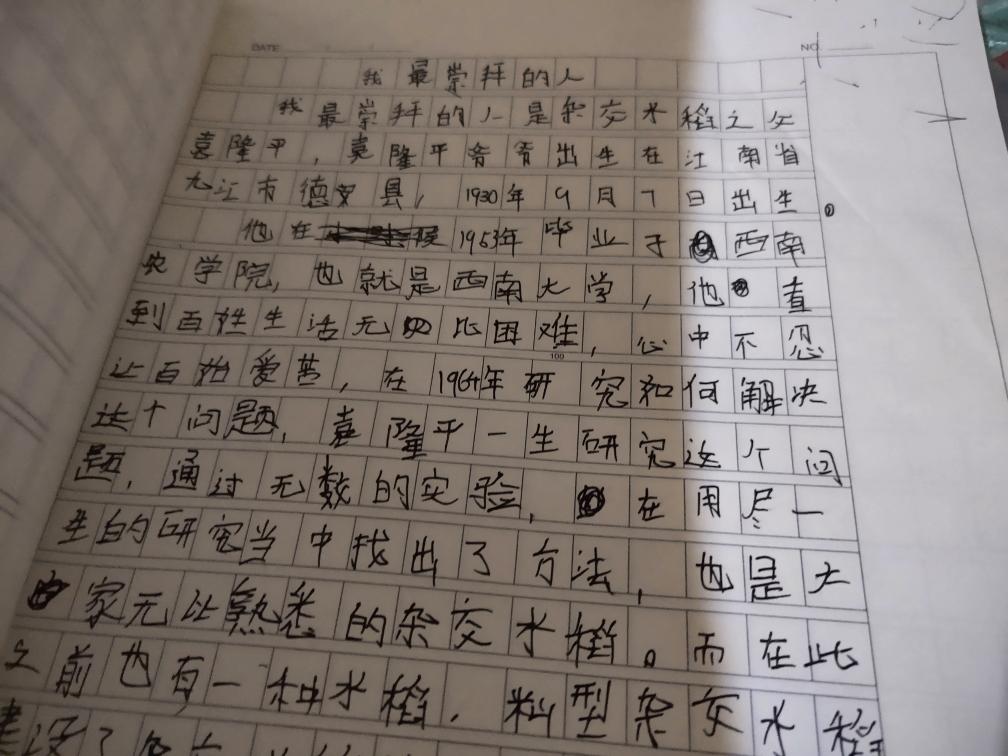 DATE
NO.
我最崇拜的人
我最崇拜的人是杂交水稻之父
袁隆平，袁隆平 出生在江南省
九江市德安县，1930年9月7日出生
他在 1953年毕业于西南
农学院，也就是西南大学，他 直
到百姓生活无比困难，心中不忍
100
让百姓受苦，在1964年研究和何解决
这个问题，袁隆平一生研究这个问
题，通过无数的实验，在用尽一
生的研究当中找出了方法，也是大
家无比熟悉的杂交水稻。而在此
之前也有一种水稻，籼型杂交水稻